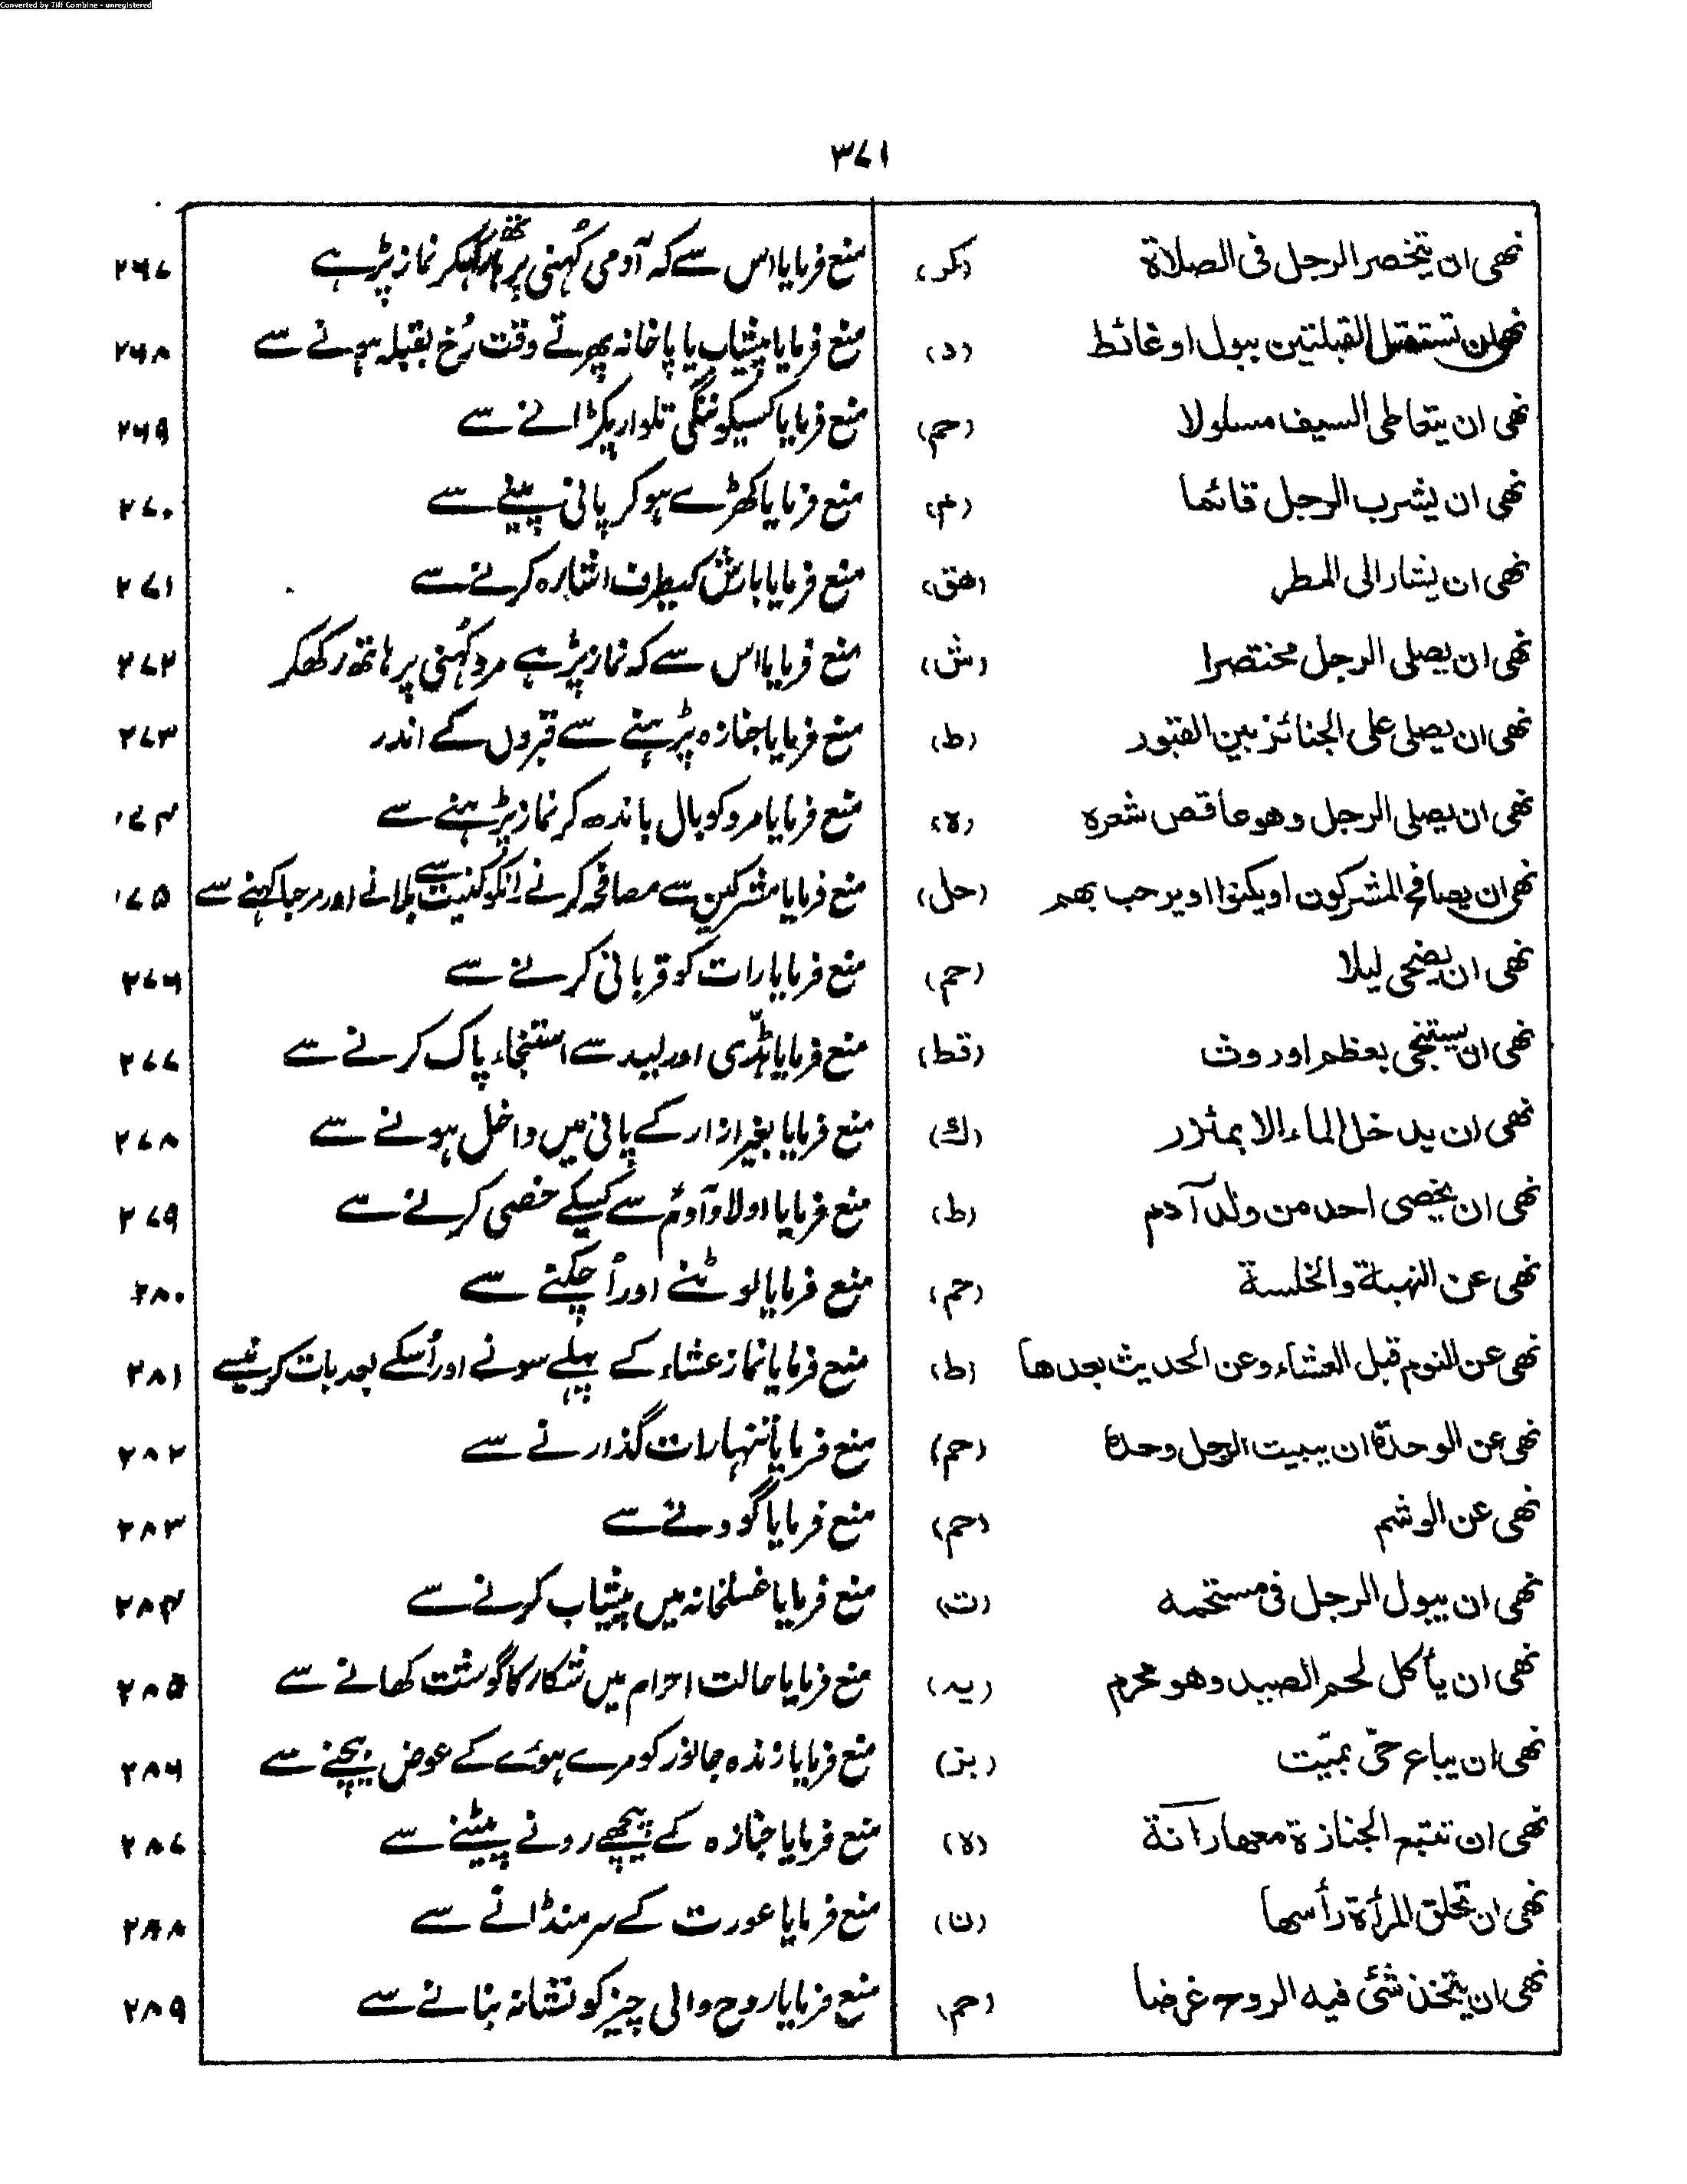 Converted by Tiff Combine - unregistered
۳۷۱
نھی ان یتخصر الرجل فی الصلاۃ (کر) منع فرمایا اس سے کہ آدمی کہنی پر ہاتھ رکھکر نماز پڑہے ۲۶۷
نھی ان تستقبل القبلتین ببول او غائط (د) منع فرمایا پیشاب یا پاخانہ پھرتے وقت رُخ بقبلہ ہونے سے ۲۶۸
نھی ان یتعاطی السیف مسلولا (حم) منع فرمایا کسیکو ننگی تلوار پکڑانے سے ۲۶۹
نھی ان یشرب الرجل قائما (م) منع فرمایا کھڑے ہو کر پانی پینے سے ۲۷۰
نھی ان یشار الی المطر (ھق) منع فرمایا بارش کیطرف اشارہ کرنے سے ۲۷۱
نھی ان یصلی الرجل مختصرا (ش) منع فرمایا اس سے کہ نماز پڑہے مرد کُہنی پر ہاتھ رکھکر ۲۷۲
نھی ان یصلی علی الجنائز بین القبور (ط) منع فرمایا جنازہ پڑہنے سے قبروں کے اندر ۲۷۳
نھی ان یصلی الرجل وھو عاقص شعرہ (ہ) منع فرمایا مرد کو بال باندھ کر نماز پڑہنے سے ۲۷۴
نھی ان یصافح المشرکون او یکنوا او یرحب بھم (حل) منع فرمایا مشرکین سے مصافحہ کرنے انکو کنیت سے بلانے اور مرحبا کہنے سے ۲۷۵
نھی ان یضحی لیلا (حم) منع فرمایا رات کو قربانی کرنے سے ۲۷۶
نھی ان یستنجی بعظم او روث (قط) منع فرمایا ہڈّی اور لید سے استنجاء پاک کرنے سے ۲۷۷
نھی ان یدخل الماء الا بمئزر (ك) منع فرمایا بغیر ازار کے پانی میں داخل ہونے سے ۲۷۸
نھی ان یخصی احد من ولد آدم (ط) منع فرمایا اولاد آدمؑ سے کسیکے خصی کرنے سے ۲۷۹
نھی عن النھبۃ والخلسۃ (حم) منع فرمایا لوٹنے اور اُچکنے سے ۲۸۰
نھی عن النوم قبل العشاء وعن الحدیث بعدھا (ط) منع فرمایا نماز عشاء کے پہلے سونے اور اُسکے بعد بات کرنیسے ۲۸۱
نھی عن الوحدۃ ان یبیت الرجل وحدہ (حم) منع فرمایا تنہا رات گذارنے سے ۲۸۲
نھی عن الوشم (حم) منع فرمایا گودنے سے ۲۸۳
نھی ان یبول الرجل فی مستحمہ (ت) منع فرمایا غسلخانہ میں پیشاب کرنے سے ۲۸۴
نھی ان یأکل لحم الصید وھو محرم (ید) منع فرمایا حالت احرام میں شکار کا گوشت کھانے سے ۲۸۵
نھی ان یباع حیّ بمیّت (بز) منع فرمایا زندہ جانور کو مرے ہوئے کے عوض بیچنے سے ۲۸۶
نھی ان تتبع الجنازۃ معھا رآنۃ (ہ) منع فرمایا جنازہ کے پیچھے رونے پیٹنے سے ۲۸۷
نھی ان تحلق المرأۃ رأسھا (ن) منع فرمایا عورت کے سر منڈانے سے ۲۸۸
نھی ان یتخذ شئی فیہ الروح غرضا (حم) منع فرمایا روح والی چیز کو نشانہ بنانے سے ۲۸۹